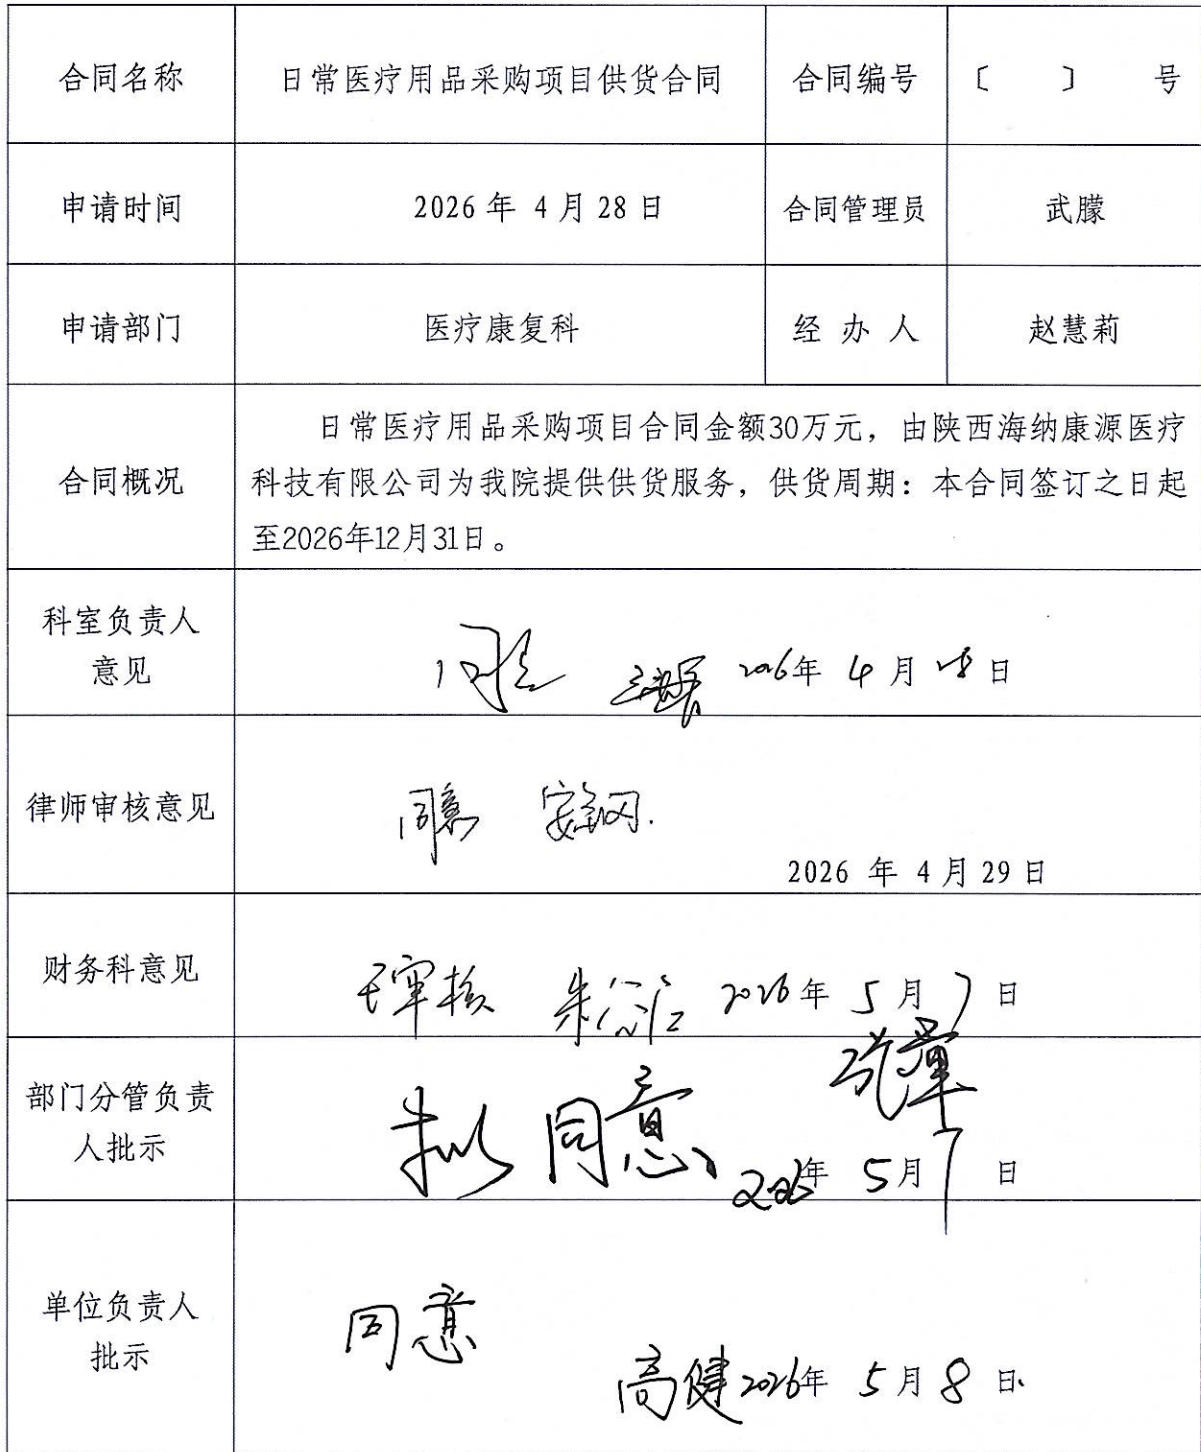 合同名称 日常医疗用品采购项目供货合同 合同编号 〔 〕 号
申请时间 2026年 4月28日 合同管理员 武朦
申请部门 医疗康复科 经 办 人 赵慧莉
合同概况
日常医疗用品采购项目合同金额30万元，由陕西海纳康源医疗
科技有限公司为我院提供供货服务，供货周期：本合同签订之日起
至2026年12月31日。
科室负责人
意见
同意 2026年 4月28日
律师审核意见
同意
2026 年 4月29日
财务科意见
已审核 2026年 5月7日
部门分管负责
人批示
拟同意
2026年 5月7日
单位负责人
批示
同意
高健 2026年 5月8日